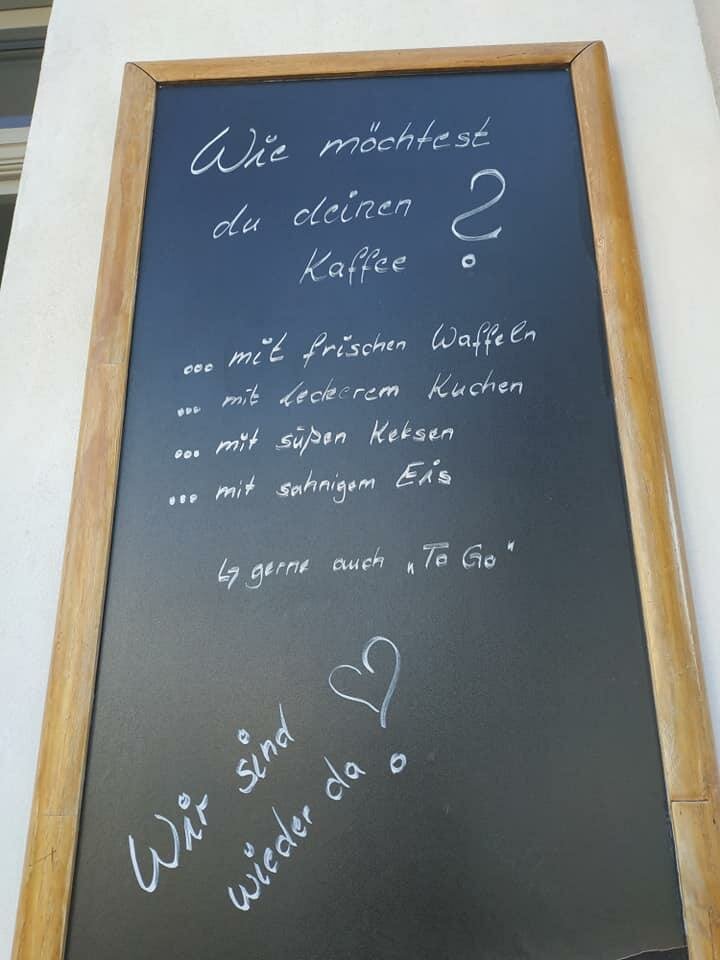 Wie möchtest
du deinen
Kaffee ?
... mit frischen Waffeln
... mit leckerem Kuchen
... mit süßen Keksen
... mit sahnigem Eis
↳ gerne auch „To Go"
Wir sind
wieder da !